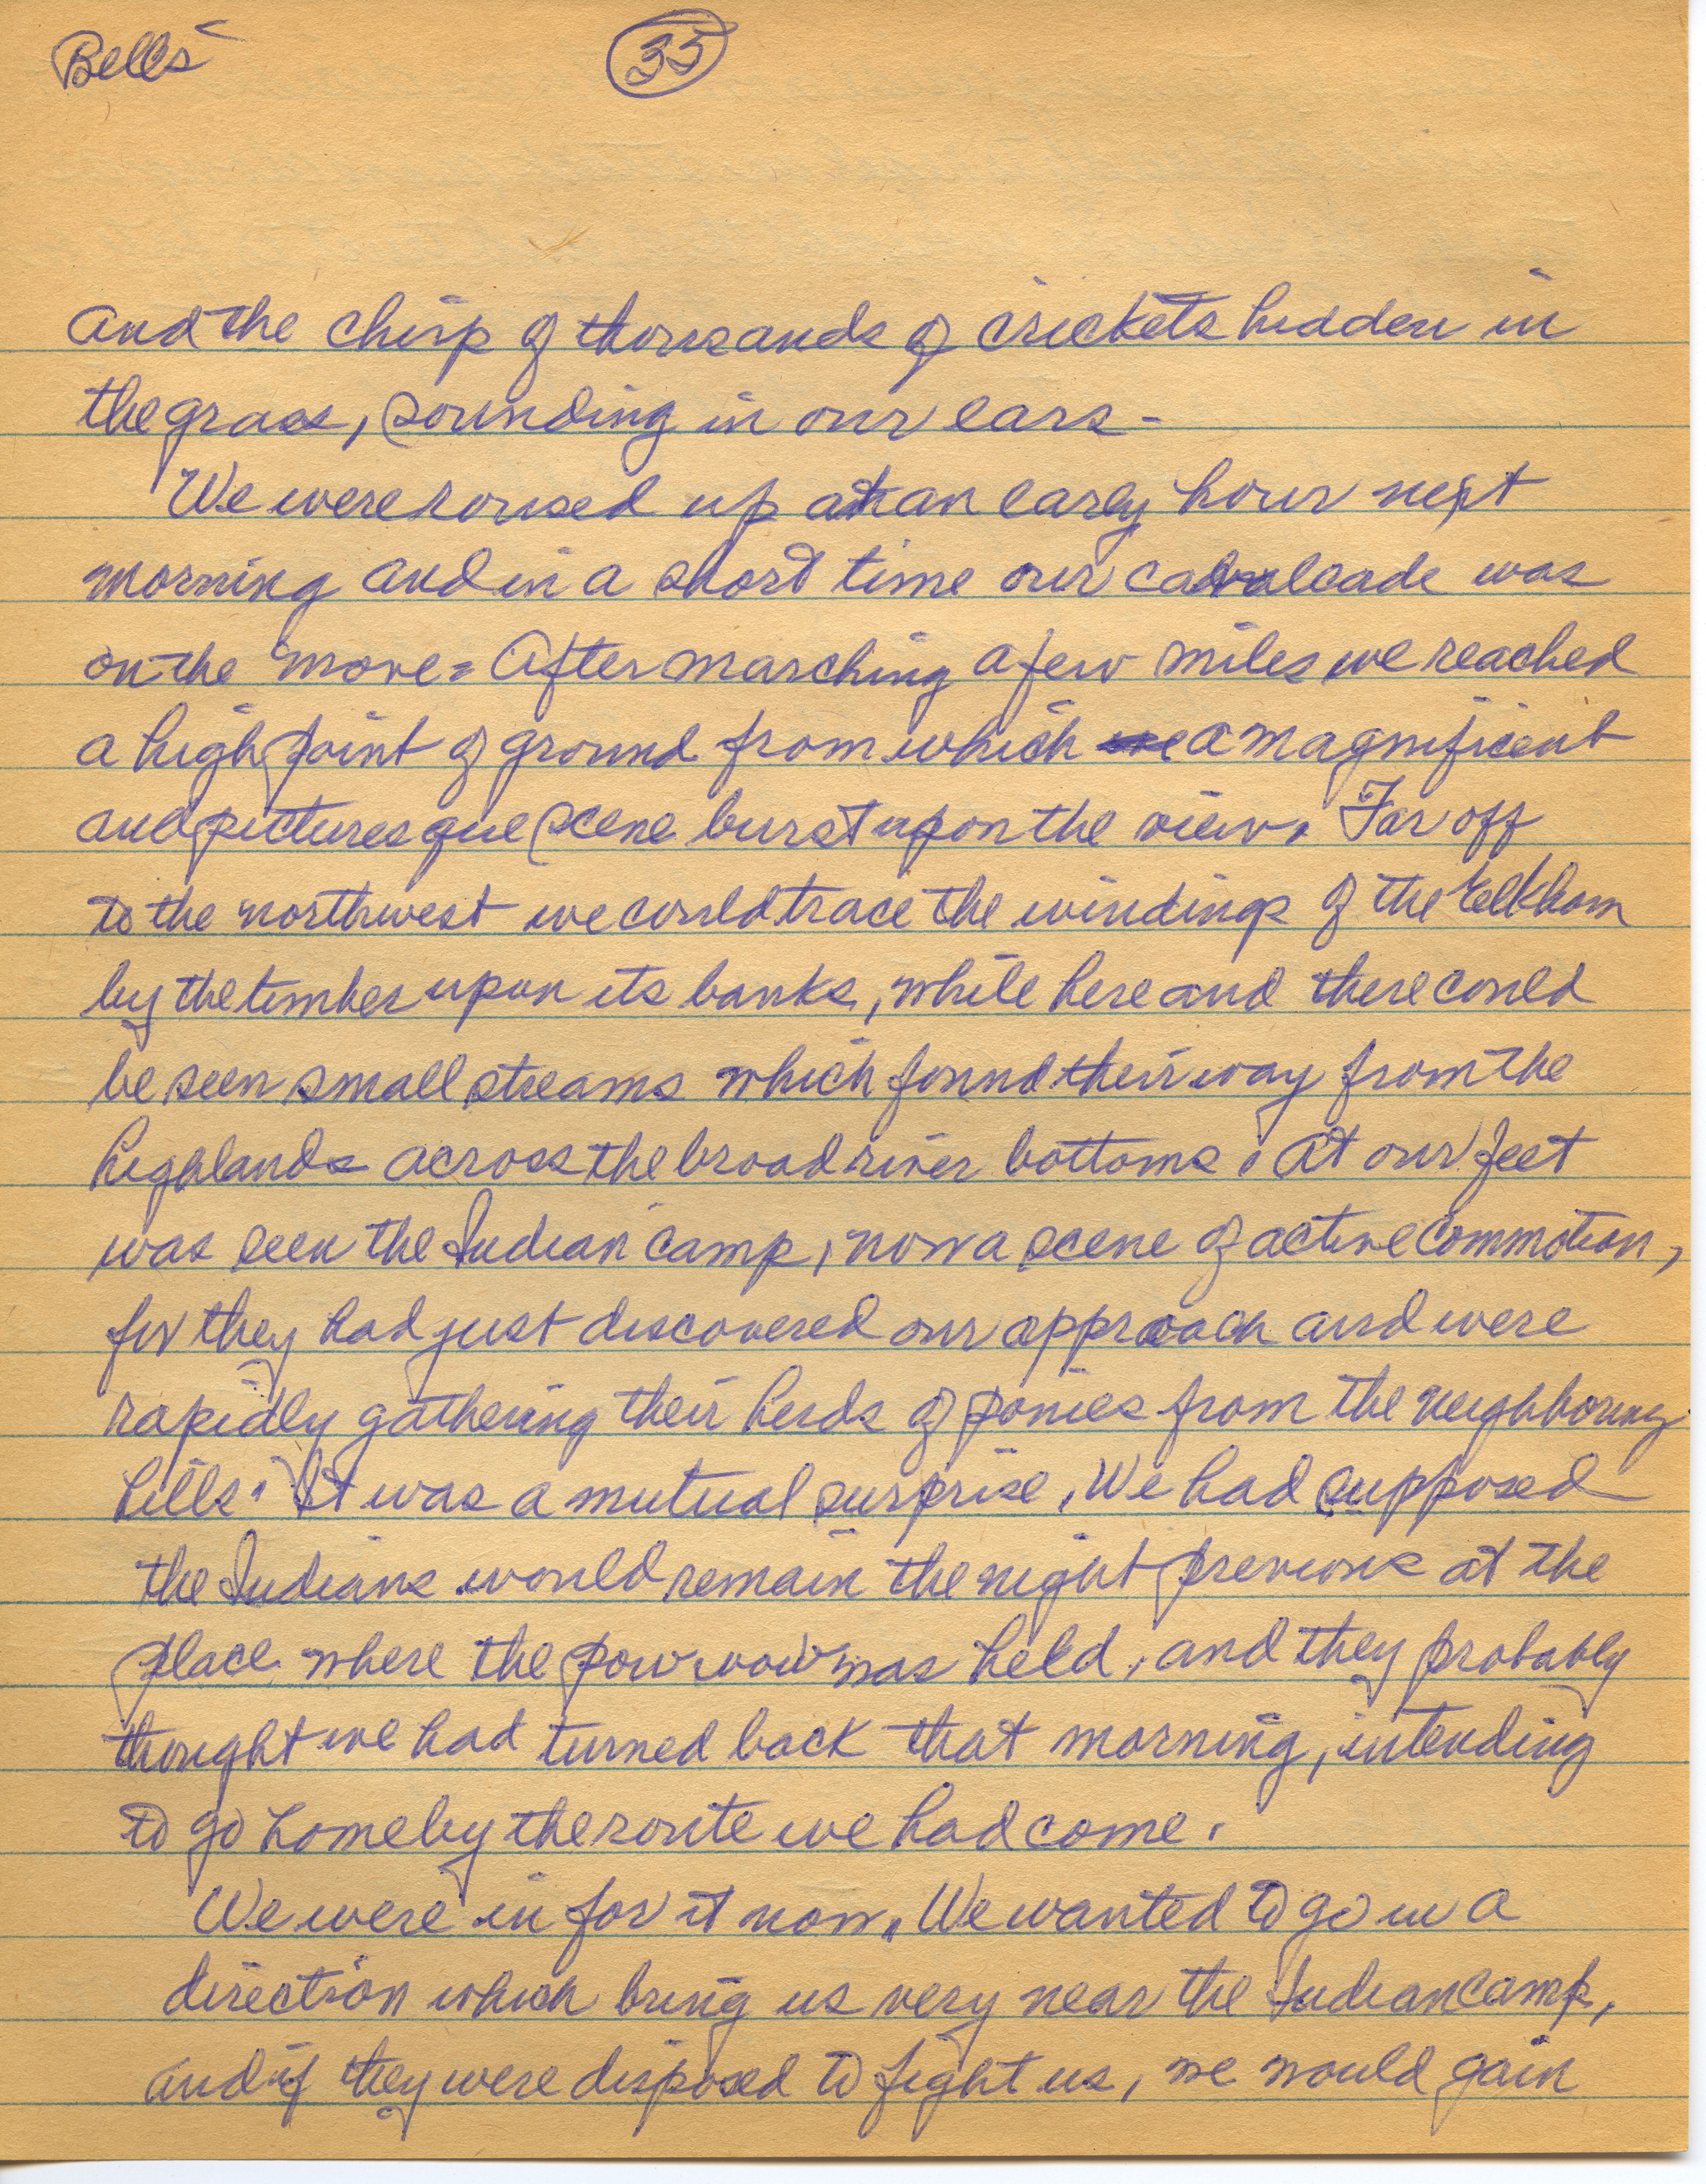 Bells
35
and the chirp of thousands of crickets hidden in
the grass, sounding in our ears -
We were roused up at an early hour next
morning and in a short time our cavalcade was
on the move = After marching a few miles we reached
a high point of ground from which a magnificent
and picturesque scene burst upon the view. Far off
to the northwest we could trace the windings of the Elkhorn
by the timber upon its banks, while here and there could
be seen small streams which found their way from the
highlands across the broad river bottoms. At our feet
was seen the Indian camp, now a scene of active commotion,
for they had just discovered our approach and were
rapidly gathering their herds of ponies from the neighboring
hills. It was a mutual surprise. We had supposed
the Indians would remain the night previous at the
place where the pow wow was held, and they probably
thought we had turned back that morning, intending
to go home by the route we had come.
We were in for it now. We wanted to go in a
direction which bring us very near the Indian camp,
and if they were disposed to fight us, we would gain